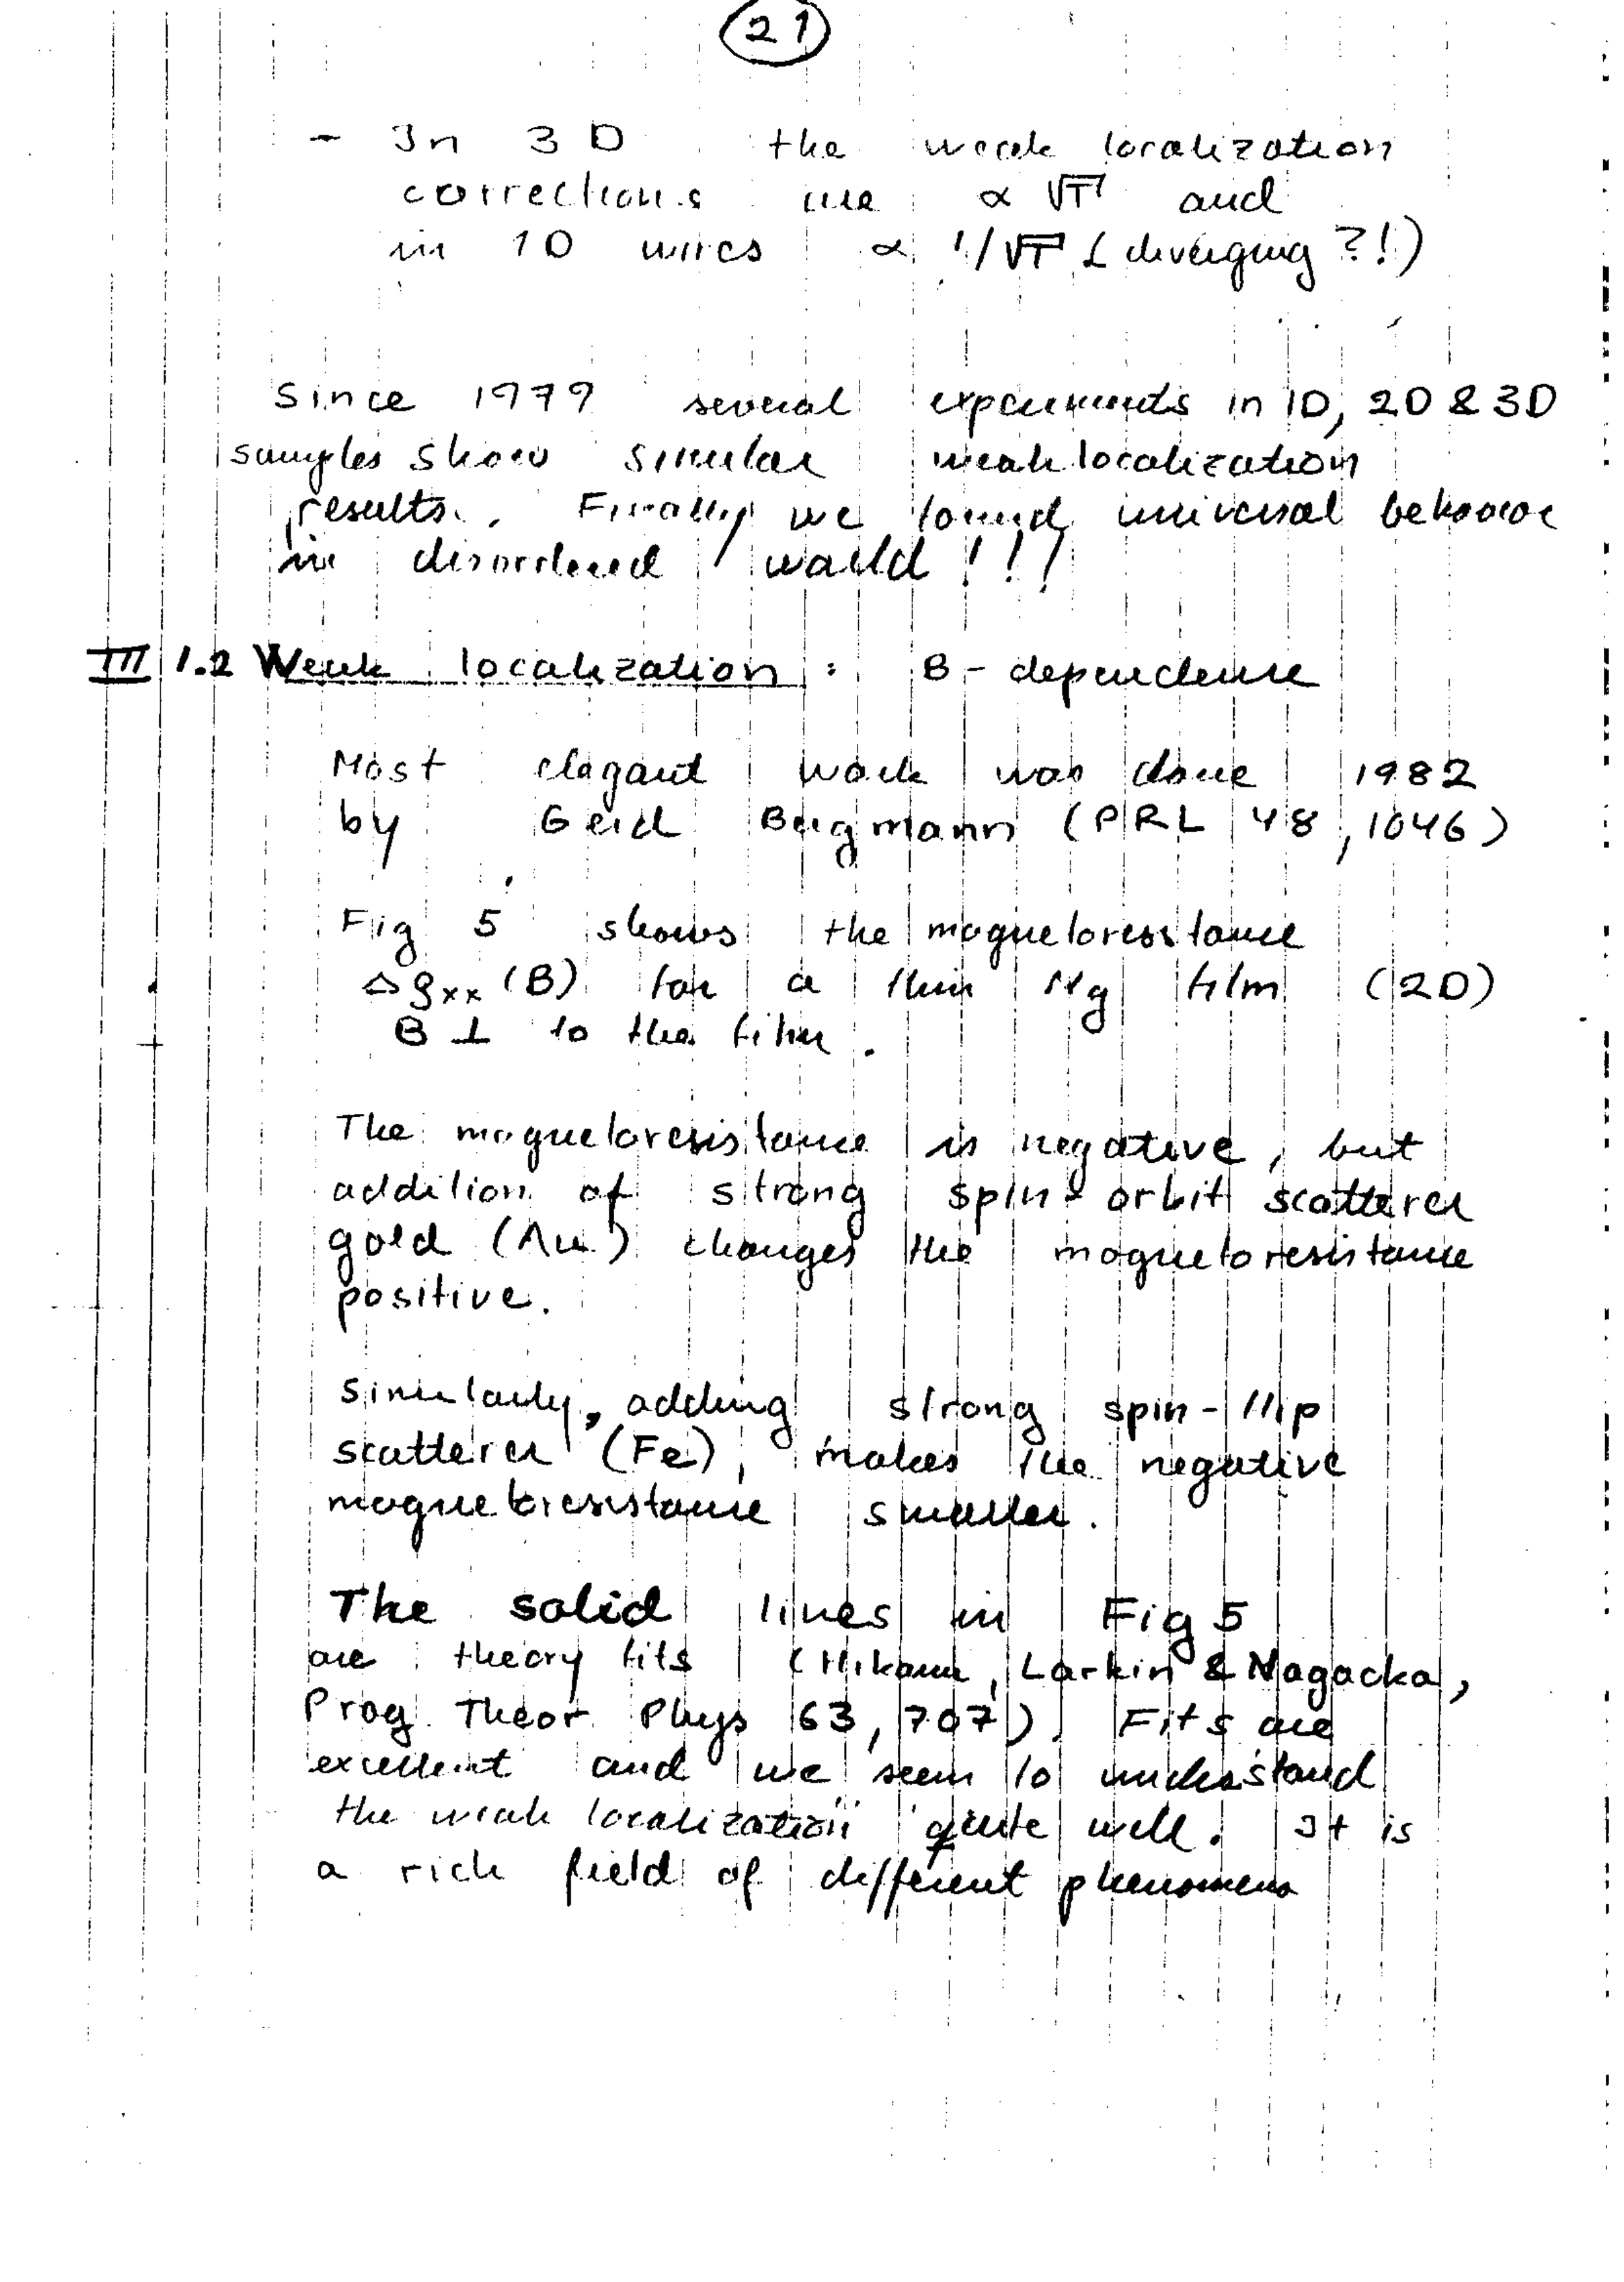 21
- In 3D the weak localization
corrections are ∝ √T and
in 1D wires ∝ 1/√T (diverging ?!)
Since 1979 several experiments in 1D, 2D & 3D
samples show similar weak localization
results. Finally we found universal behavior
in disordered world !!!
III 1.2 Weak localization : B - dependence
Most elegant work was done 1982
by Gerd Bergmann (PRL 48, 1046)
Fig 5 shows the magnetoresistance
Δρxx (B) for a thin Mg film (2D)
B ⊥ to the film.
The magnetoresistance is negative, but
addition of strong spin-orbit scatterer
gold (Au) changes the magnetoresistance
positive.
Similarly, adding strong spin-flip
scatterer (Fe), makes the negative
magnetoresistance smaller.
The solid lines in Fig 5
are theory fits (Hikami, Larkin & Nagaoka,
Prog. Theor. Phys 63, 707). Fits are
excellent and we seem to understand
the weak localization quite well. It is
a rich field of different phenomena